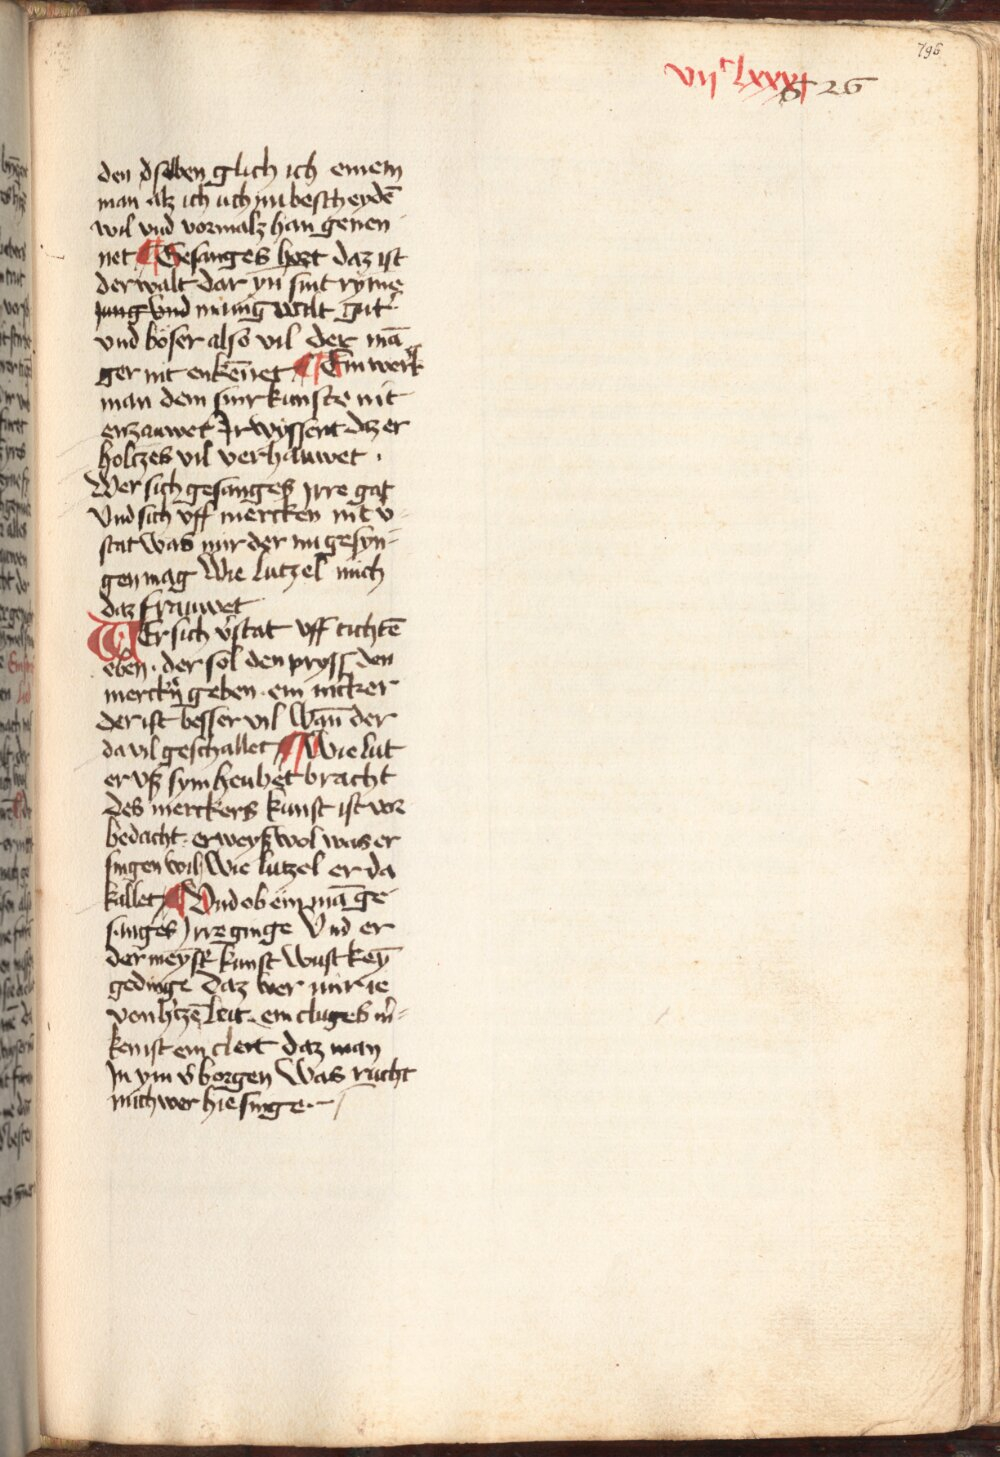 796
vijc lxxxj 826
den dselben glich ich einem
man alz ich uch nu bescheydē
wil vnd vormalz han genen
net Gesanges hort daz ist
der walt dar yn sint ryme
jung vnd manig valt gut
vnd böser also vil der mā
ger nit enkēnet Ein werk
man dem sinr kunste nit
enzauwet Ir wyssent daz er
holtzes vil verhauwet .
Wer sich gesanges Irre gat
Vnd sich vff mercken nit v̓
stat Was mir der nu gesyn
gen mag Wie lutzel mich
daz frauwet
WEr sich v̓stat vff tichtē
eben . der sol den pryss den
merckn̄ geben . ein nicker
der ist besser vil Wan̄ der
da vil geschallet Wie lut
er vß sym heubet bracht
des merckers kunst ist vor
bedacht . er weyß wol was er
singen wil Wie lutzel er da
kallet Vnd ob ein mā ge
sanges Irre ginge Vnd er
der meyst̓ kunst Wust keyn̄
gedinge daz wer mir ie
von h̓tzē leit . ein cluges m̓
ken ist ein cleit daz man
In ym v̓borgen Was rucht
mich wer hie singe